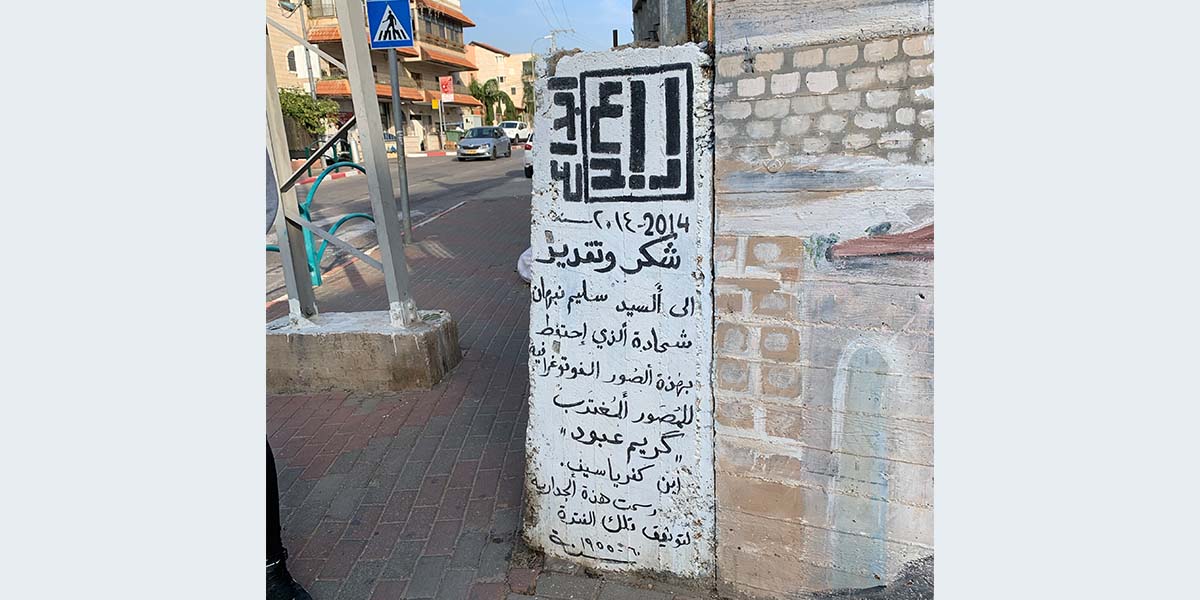 2014-٢٠١٤ سنة
شكر وتقدير
الى ألسيد سليم نبهان
شحادة ألذي إحتفظ
بهذة ألصور الفوتوغرافية
للمَصَور ألمُغترب
"كريم عبود"
إبن كفرياسيف.
رسمت هذة الجدارية
لتوثيق تلك الفترة
٦٠-١٩٥٥ سنة